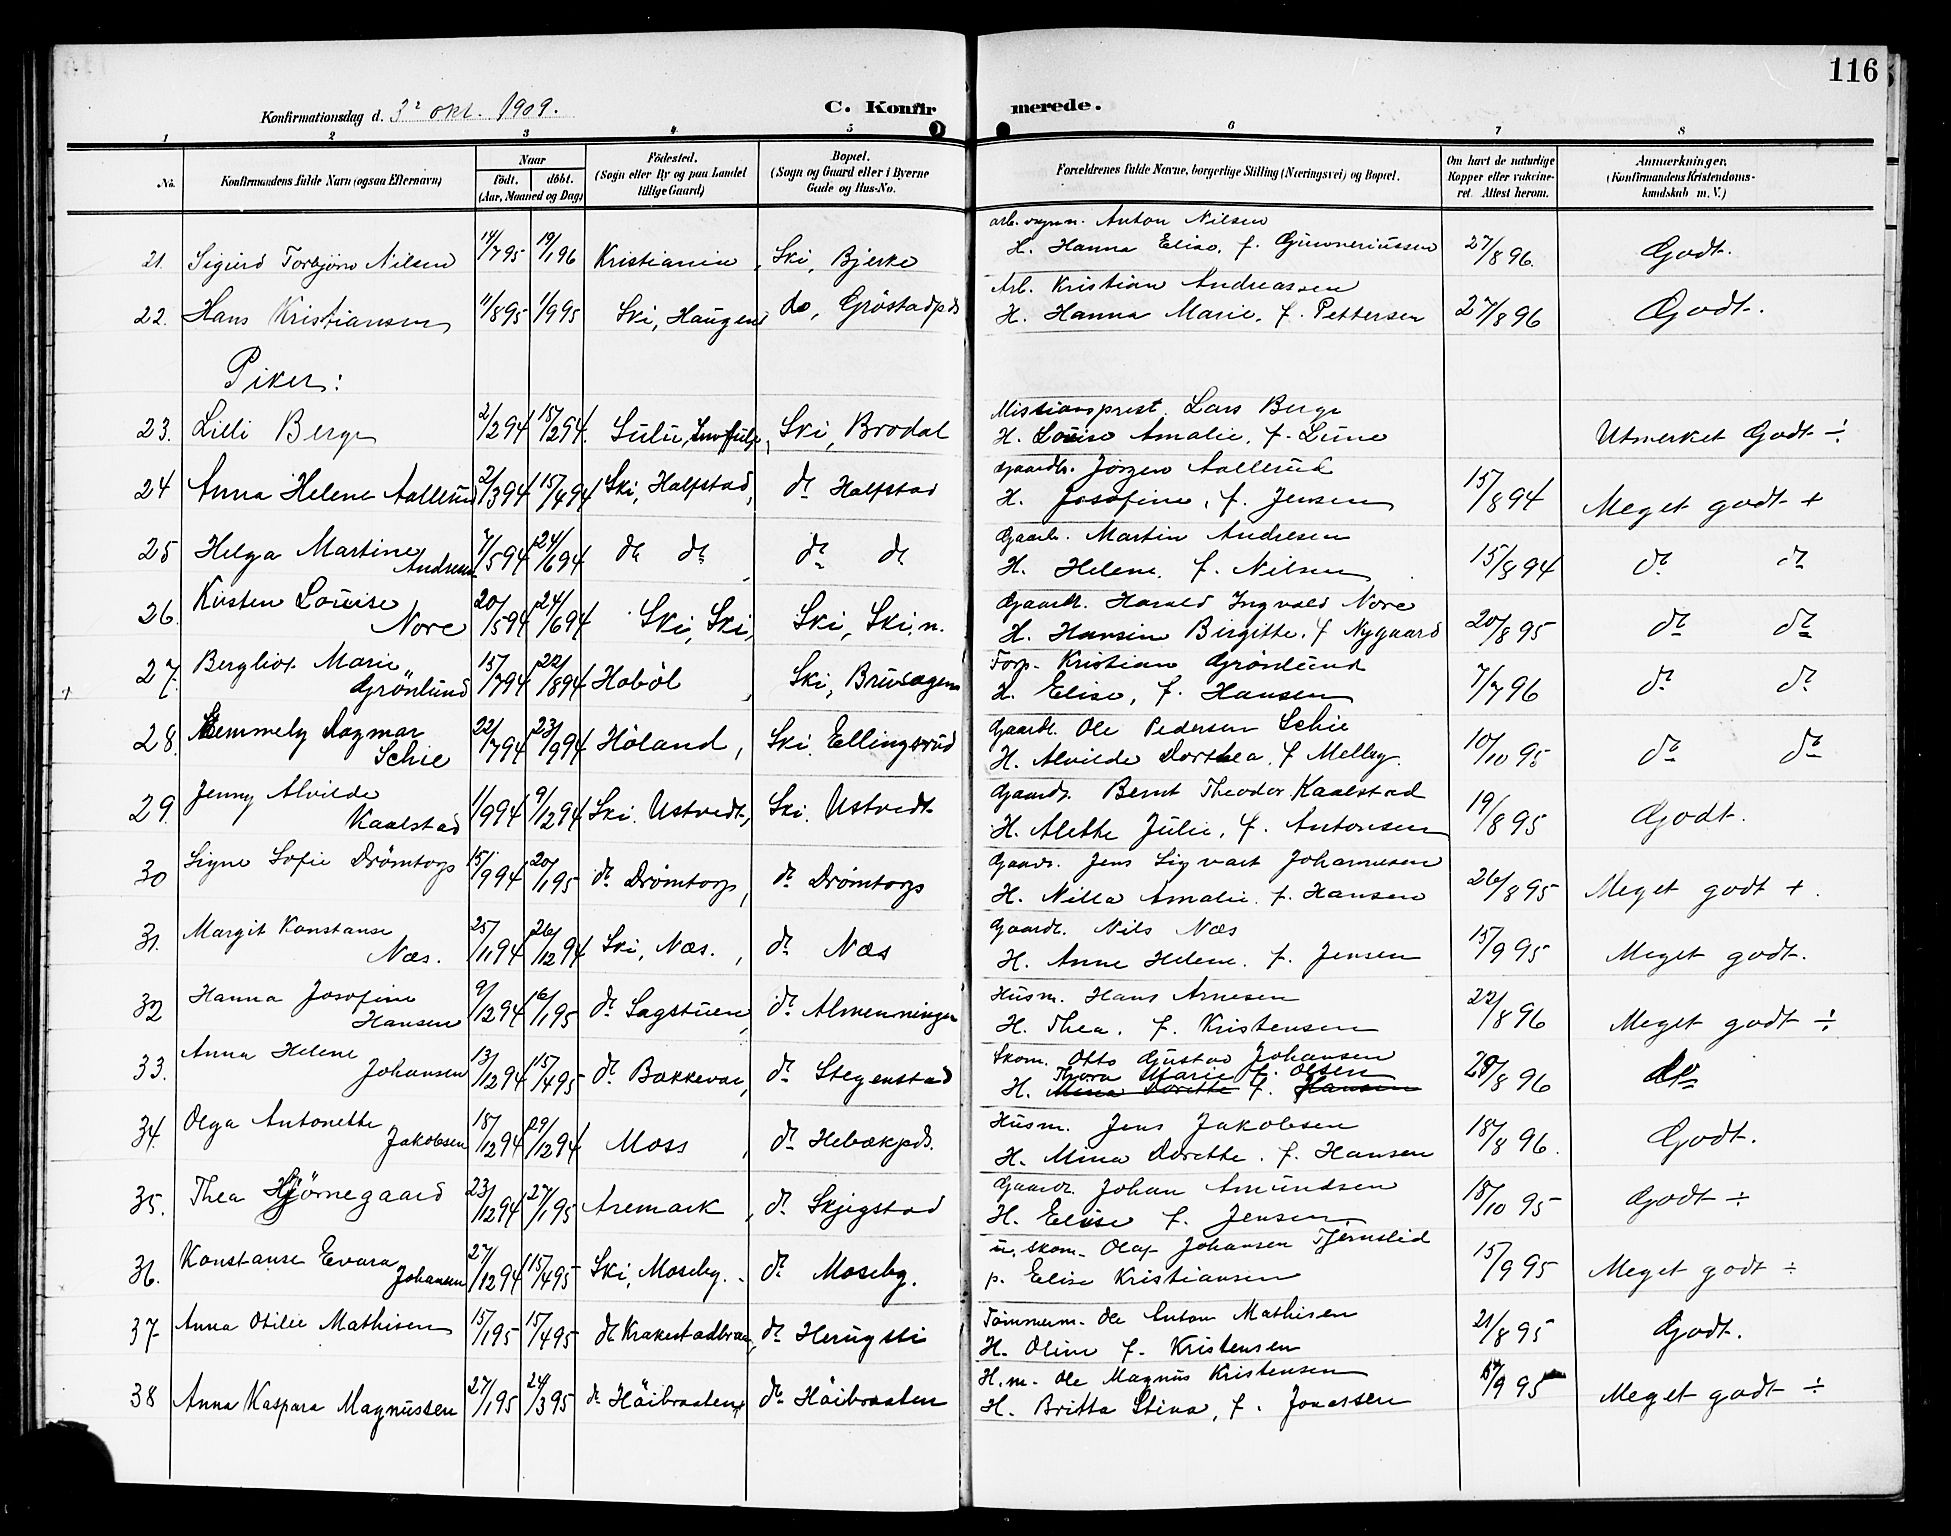 116
Konfirmationsdag d. 3² okt. 1909.
C. Konfir merede.
1 2 3 4 5 6 7 8
No. Konfirmandens fulde Navn (ogsaa Efternavn) Naar født. døbt. (Aar, Maaned og Dag) Fødested. (Sogn eller By og paa Landet tillige Gaard) Bopæl. (Sogn og Gaard eller i Byerne Gade og Hus-No. Forældrenes fulde Navne, borgerlige Stilling (Næringsvei) og Bopæl. Om havt de naturlige Kopper eller vaccineret. Attest herom. Anmærkninger. (Konfirmandens Kristendomskundskab m. V.)
arb. Anton Nilsen
21. Sigurd Torbjørn Nilsen 14/7 95 19/1 96 Kristiania, Ski, Bjerke H. Hanna Elise, f. Gunneriussen 27/8 96. Godt.
Arb. Kristian Andreassen
22. Hans Kristiansen 11/8 95 1/9 95 Ski, Haugen do, Gröstadpds H. Hanna Marie, f. Pettersen 27/8 96 Godt.
Piker:
Missionsprest. Lars Berge
23. Lilli Berge 2/2 94 18/2 94. Sulu, Ski, Brodal H. Louise Amalie, f. Lune Utmerket Godt ÷
Gaardb. Jörgen Aallerud
24 Anna Helene Aallerud 2/3 94 15/4 94 Ski, Halfstad, do Halfstad H. Josefine, f. Jensen 15/8 94 Meget godt +
Gaarb. Martin Andresen
25 Helga Martine Andresen 7/5 94 24/6 94 do do, do do H. Helene f. Nilsen 15/8 94 do do
Gaardb. Harald Ingvald Nore
26. Kirsten Louise Nore 20/5 94 24/6 94 Ski, Ski, Ski, Ski, n. H. Hansine Birgitte, f Nygaard 20/8 95 do do
Forp. Kristian Grönlund
27. Bergliot Marie Grönlund 15/7 94 22/8 94 Haböl, Ski, Brusagen H. Elise, f. Hansen 7/7 96 do do
Gaardb. Ole Pedersen Schie
28. Hemmely Dagmar Schie 22/7 94 23/9 94 Höland, Ski. Ellingsrud H. Alvilde Dorthea, f Melby. 10/10 95 do do
Gaardb. Bernt Theodor Kaalstad
29. Jenny Alvilde Kaalstad 1/9 94 9/12 94 Ski. Ustvedt, Ski. Ustvedt H. Alette Julie, f. Antonsen 19/8 95 Godt.
Gaardb. Jens Sigvart Johannesen
30 Signe Sofie Drömtorp 15/9 94 20/1 95 do Drömtorp, do Drömtorp H. Nilla Amalie f. Hansen 26/8 95 Meget godt +.
Gaardb. Nils Næs
31. Margit Konstanse Næs. 25/11 94 26/12 94 Ski, Næs., do Næs H. Anne Helene f. Jensen 15/9 95 Meget godt.
Husm. Hans Arnesen
32 Hanna Josefine Hansen 9/12 94 6/1 95 do Sagstuen, do Almenningen H. Thea, f. Kristensen 22/8 96 Meget godt ÷
Skom. Otto Gustav Johansen
Thora Marie f. Olsen
33. Anna Helene Johansen 13/12 94 15/4 95 do Bakkevar, do Stegenstad H. Mina Dorette f. Hansen 29/8 96 do
Husm. Jens Jakobsen
34. Olga Antonette Jakobsen 18/12 94 29/12 94 Moss, do Hebækpds. H. Mina Dorette. f. Hansen 18/8 96. Godt.
Gaardb. Johan Amundsen
35. Thea Hjörnegaard 23/12 94 27/1 95 Aremark, do Skjegstad H. Elise f. Jensen 18/10 95 Godt ÷
u. skom. Olaf Johansen Tjernslid
36. Konstanse Evara Johansen 27/12 94 15/4 95 Ski, Moseby. do Moseby. p. Elise Kristiansen 15/9 95 Meget godt ÷
Tömmerm. Ole Anton Mathisen
37 Anna Otilie Mathisen 15/1 95 15/4 95 do Krakestadbraa, do Herugsti H. Oline f. Kristensen 21/8 95 Godt.
H.m. Ole Magnus Kristensen
38 Anna Kaspara Magnussen 27/1 95 24/3 95 do Höibraaten, do Höibraaten H. Britta Stina, f. Jonassen 9 95 Meget godt ÷